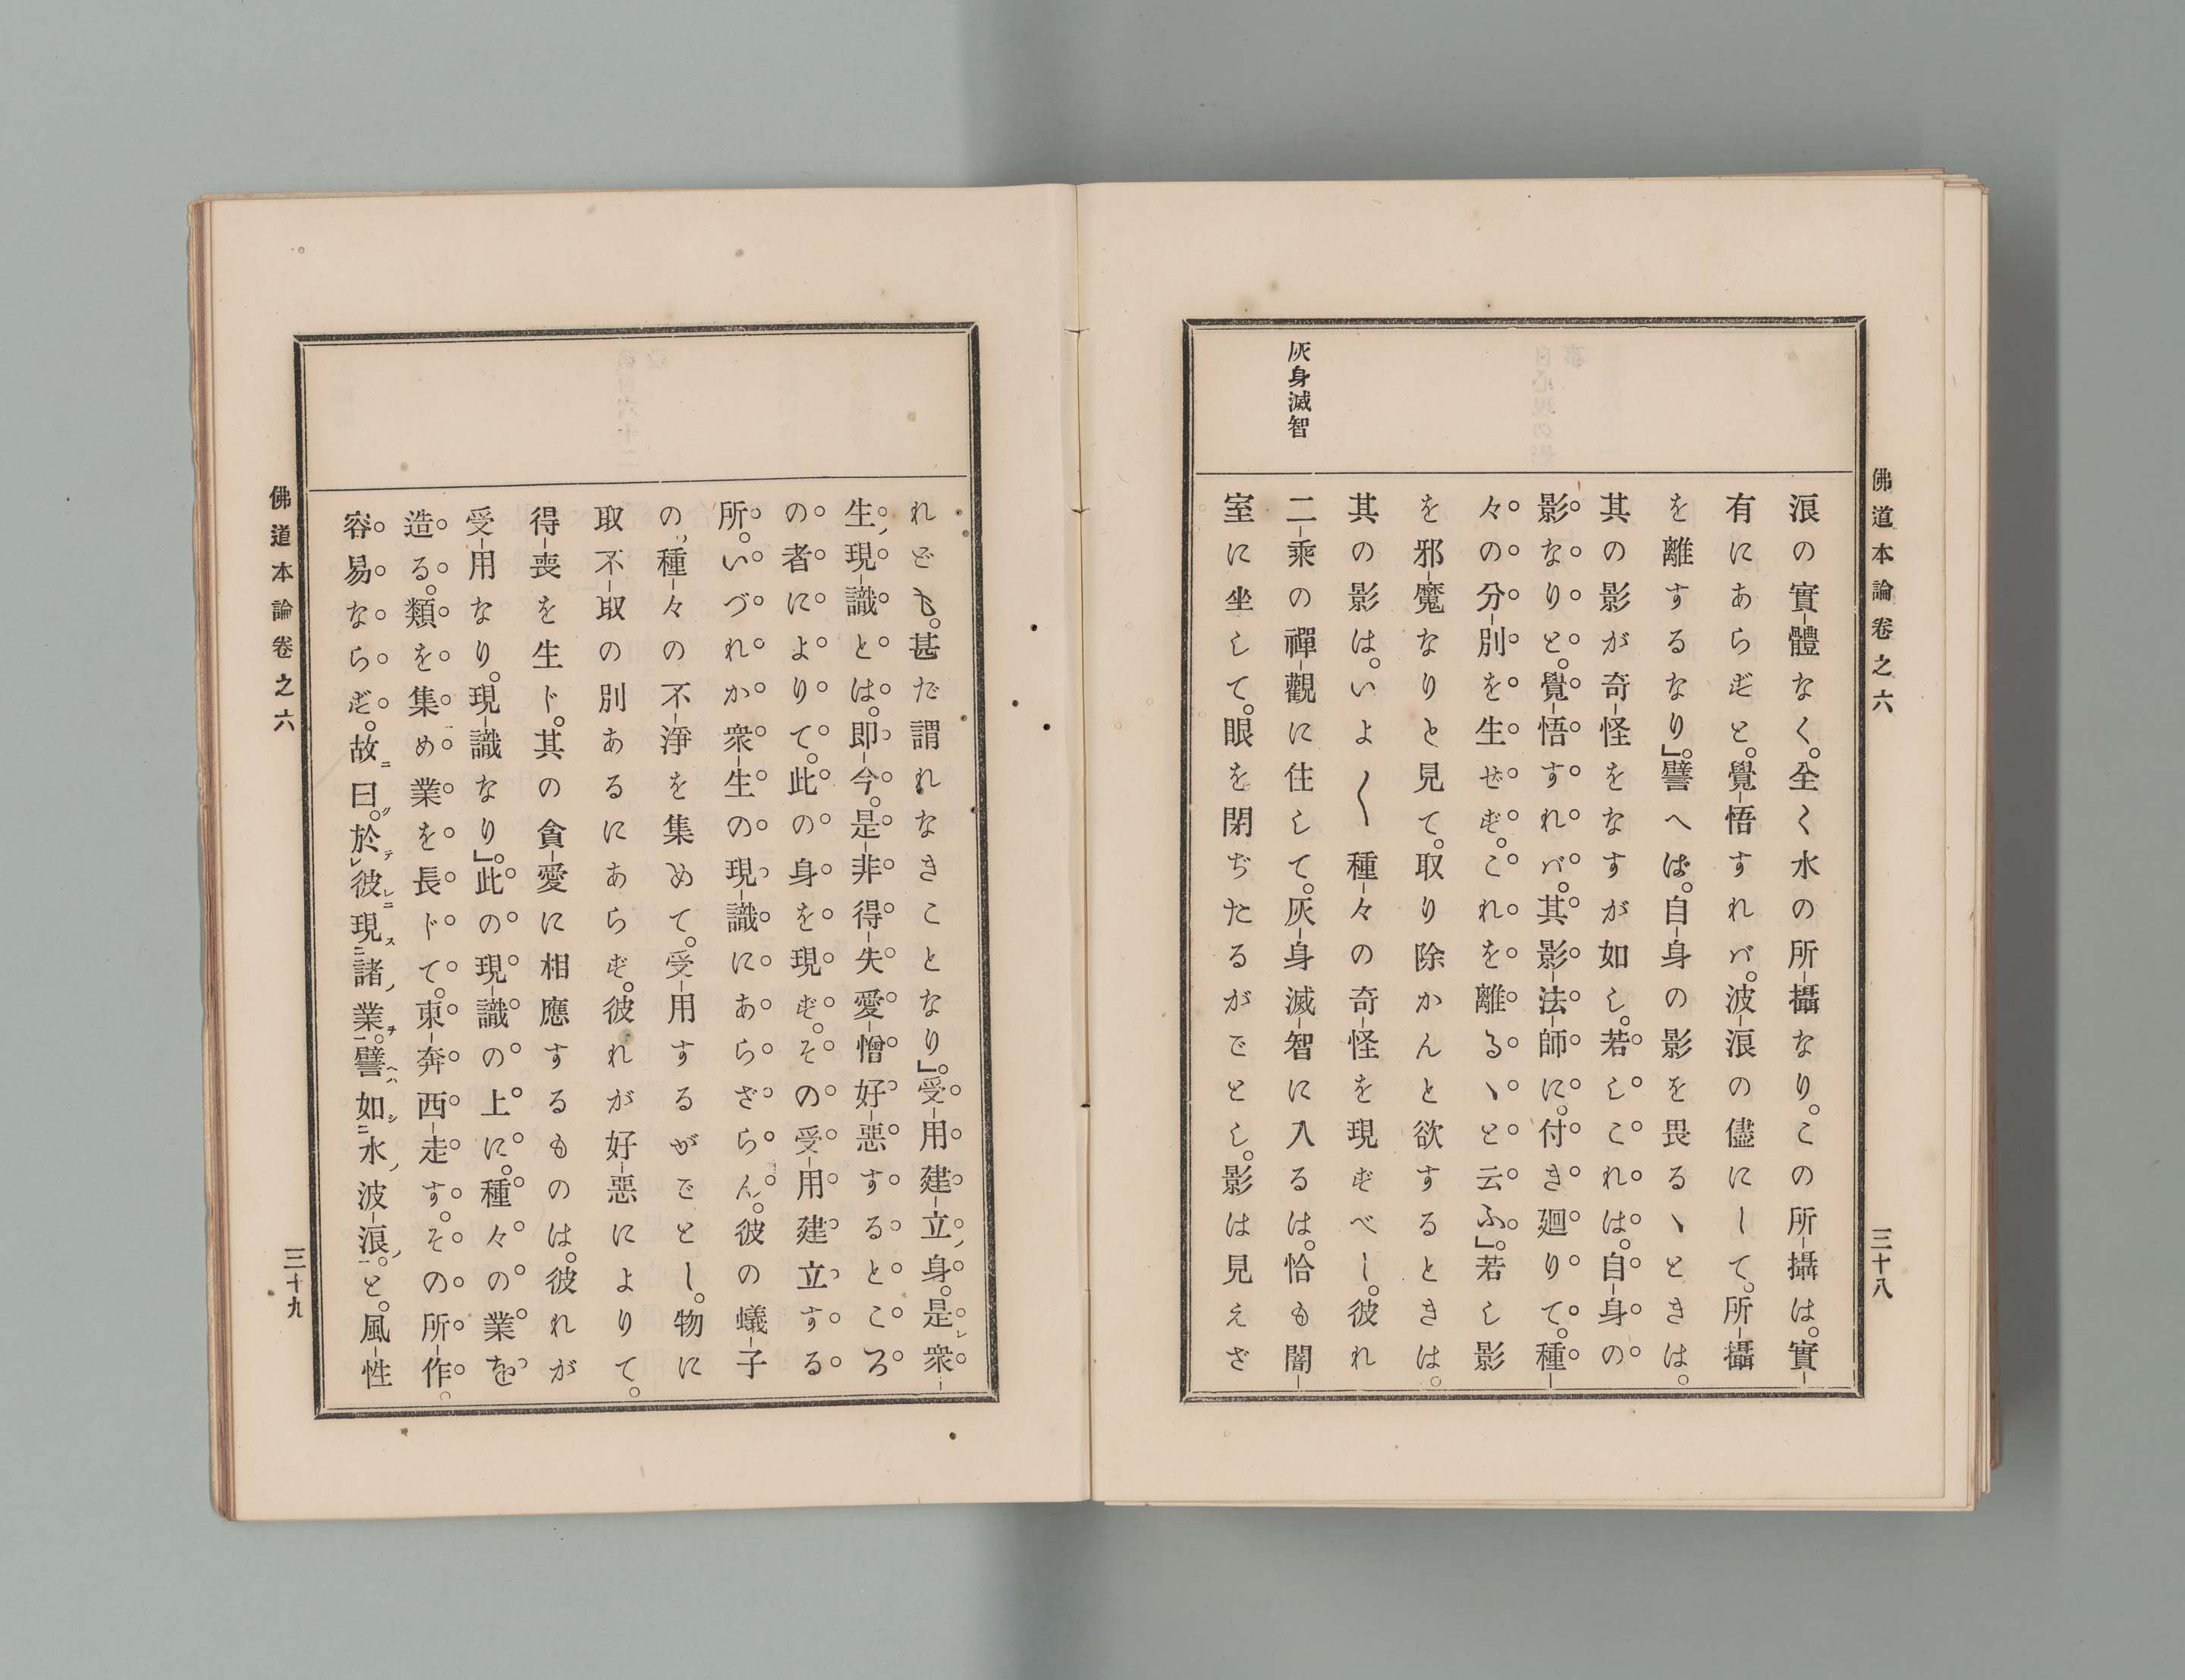 佛道本論卷之六
三十八
灰身滅智
浪の實-體なく。全く水の所-攝なり。この所-攝は。實-
有にあらずと。覺-悟すれバ。波-浪の儘にして。所-攝
を離するなり』。譬へば。自-身の影を畏るゝときは。
其の影が奇-怪をなすが如し。若しこれは。自-身の
影なりと。覺-悟すれバ。其-影-法-師に。付き廻りて。種-
々の分-別を生せず。これを離るゝと云ふ』。若し影
を邪-魔なりと見て。取り除かんと欲するときは。
其の影は。いよ〱種-々の奇-怪を現ずべし。彼れ
二-乘の禪-觀に住して。灰-身滅-智に入るは。恰も闇-
室に坐して。眼を閉ぢたるがごとし。影は見えざ
れども。甚だ謂れなきことなり』。受-用建-立、身。是レ衆-
生、現-識とは。即-今。是-非得-失愛-憎好-惡するところ
の者によりて。此の身を現ず。その受-用建立する
所。いづれか衆-生の現-識にあらざらん。彼の蟻-子
の、種-々の不-淨を集めて。受-用するがごとし。物に
取不-取の別あるにあらず。彼れが好-惡によりて。
得-喪を生ド。其の貪-愛に相應するものは。彼れが
受-用なり。現-識なり』。此の現-識の上に。種々の業を
造る。類を集め業を長ドて。東-奔西-走す。その所-作。
容易ならず。故ニ曰ク。於テレ彼レニ現ス二諸ノ業ヲ一。譬ヘハ如シ二水ノ波-浪ノ一。と。風-性
佛道本論卷之六
三十九